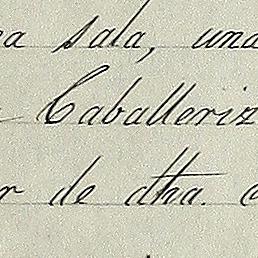 sala, una
Caballeriz
de dha.